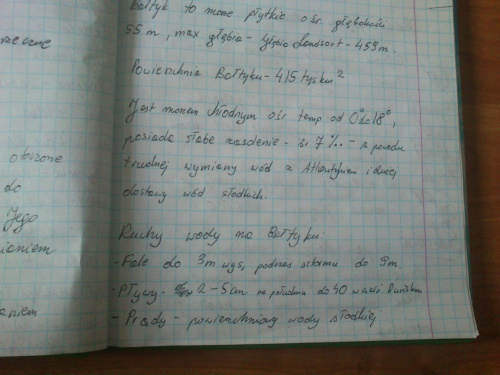 Bałtyk to morze płytkie śr. głębokość
55 m, max głębia - Głębia Landsort - 459 m.
Powierzchnia Bałtyku - 415 tys km²
Jest morzem chłodnym śr. temp od 0° do 18°,
posiada słabe zasolenie - śr 7‰ - z powodu
trudnej wymiany wód z Atlantykiem i dużej
dostawy wód słodkich.
Ruchy wody na Bałtyku:
- Fale do 3m wys, podczas sztormu do 9m
- Pływy - 2-5cm na południu do 40 w cieśn. Duńskich
- Prądy - powierzchniowy wody słodkiej
obszone
do
Jego
aniem